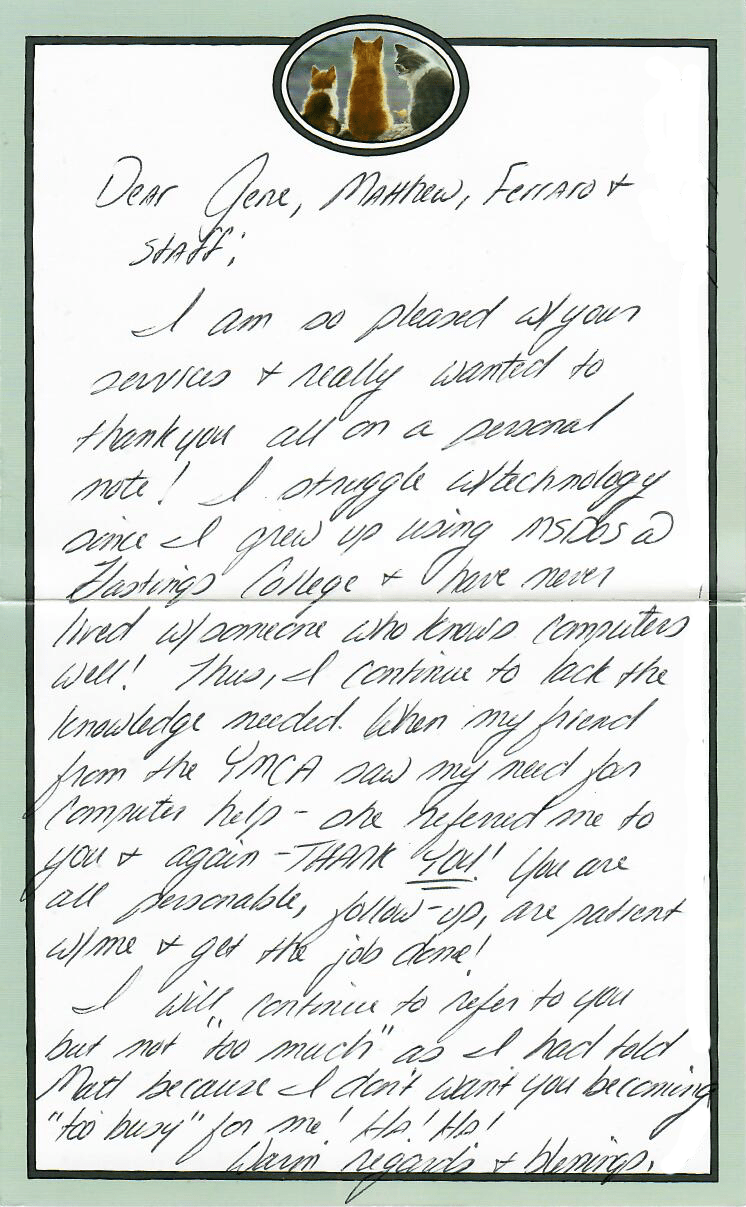 Dear Gene, Matthew, Ferraro +
Staff;
I am so pleased w/your
services + really wanted to
thank you all on a personal
note! I struggle w/technology
since I grew up using MSDOS @
Hastings College + have never
lived w/someone who knows computers
well! Thus, I continue to lack the
knowledge needed. When my friend
from the YMCA saw my need for
computer help - she referred me to
you + again - THANK YOU! You are
all personable, follow-up, are patient
w/me + get the job done!
I will continue to refer to you
but not "too much" as I had told
Matt because I don't want you becoming
"too busy" for me! HA! HA!
Warm regards + blessings,